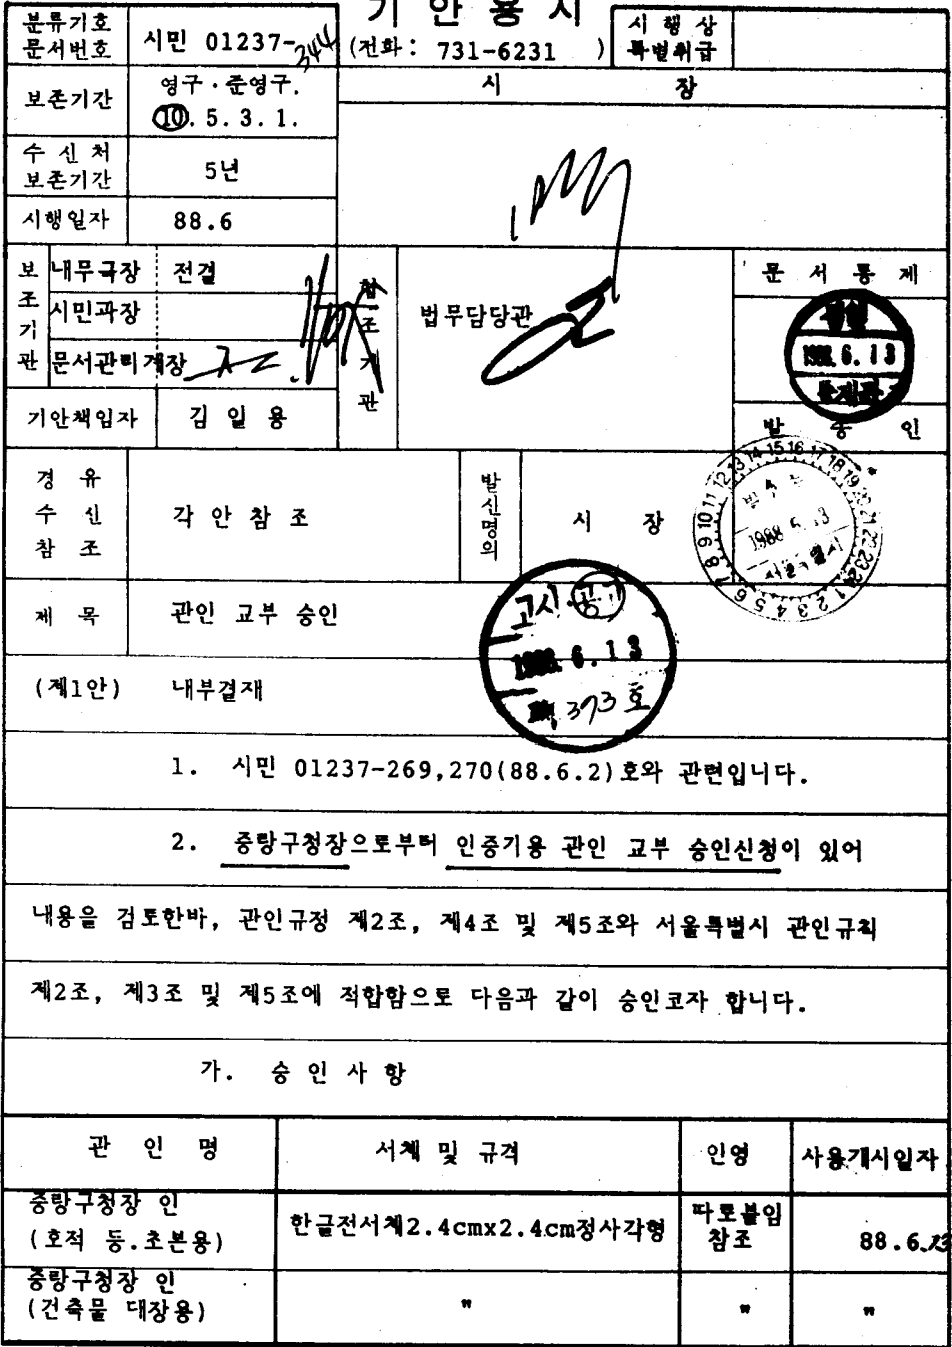 기 안 용 지
분류기호
문서번호
시민 01237-344
(전화: 731-6231 )
시 행 상
특별취급
보존기간
영구·준영구.
10. 5. 3. 1.
시 장
수 신 처
보존기간
5년
시행일자
88.6
보조기관
내무국장 전결
시민과장
문서관리계장
협조기관
법무담당관
문 서 통 제
1988. 6. 13
기안책임자
김 일 용
발 송 인
경 유
수 신
참 조
각 안 참 조
발신명의
시 장
1988 6. 13
서울특별시
제 목
관인 교부 승인
고시·공고
1988. 6. 13
제 373 호
(제1안) 내부결재
1. 시민 01237-269,270(88.6.2)호와 관련입니다.
2. 중랑구청장으로부터 인증기용 관인 교부 승인신청이 있어
내용을 검토한바, 관인규정 제2조, 제4조 및 제5조와 서울특별시 관인규칙
제2조, 제3조 및 제5조에 적합함으로 다음과 같이 승인코자 합니다.
가. 승 인 사 항
관 인 명 서체 및 규격 인영 사용개시일자
중랑구청장 인
(호적 등.초본용)
한글전서체2.4cmx2.4cm정사각형
따로붙임
참조
88.6.13
중랑구청장 인
(건축물 대장용)
" " "